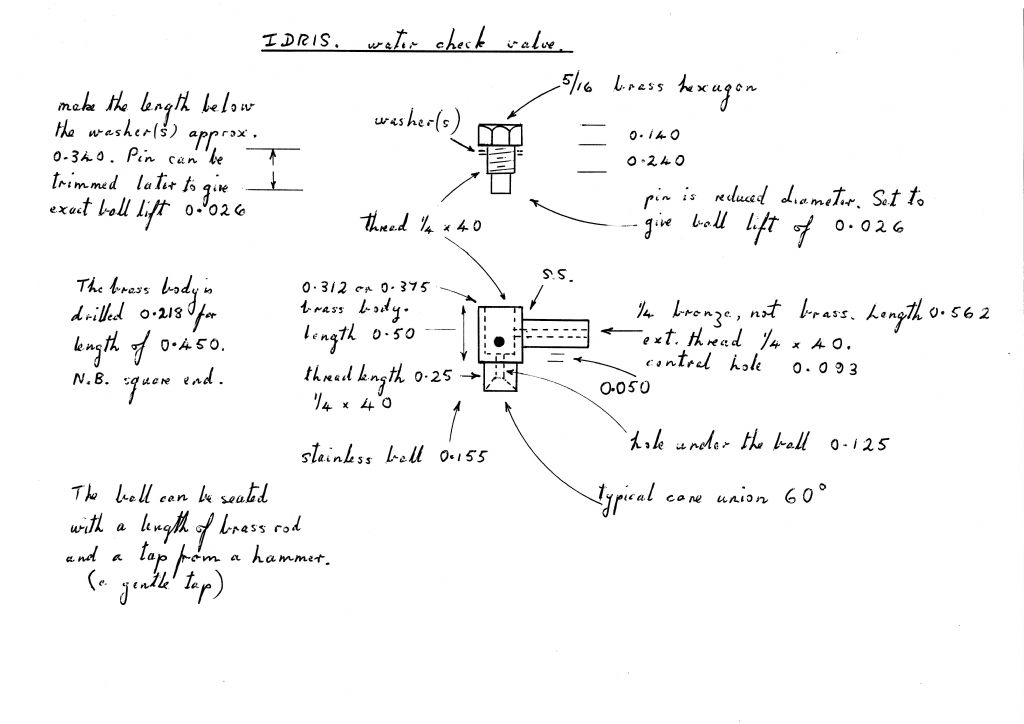 IDRIS. water check valve.
5/16 brass hexagon
make the length below
the washer(s) approx.
0.340. Pin can be
trimmed later to give
exact ball lift 0.026
washer(s)
0.140
0.240
pin is reduced diameter. Set to
give ball lift of 0.026
thread 1/4 x 40
The brass body is
drilled 0.218 for
length of 0.450.
N.B. square end.
0.312 or 0.375
brass body.
length 0.50
thread length 0.25
1/4 x 40
stainless ball 0.155
s.s.
1/4 bronze, not brass. Length 0.562
ext. thread 1/4 x 40.
central hole 0.093
0.050
hole under the ball 0.125
typical cone union 60°
The ball can be seated
with a length of brass rod
and a tap from a hammer.
(a gentle tap)